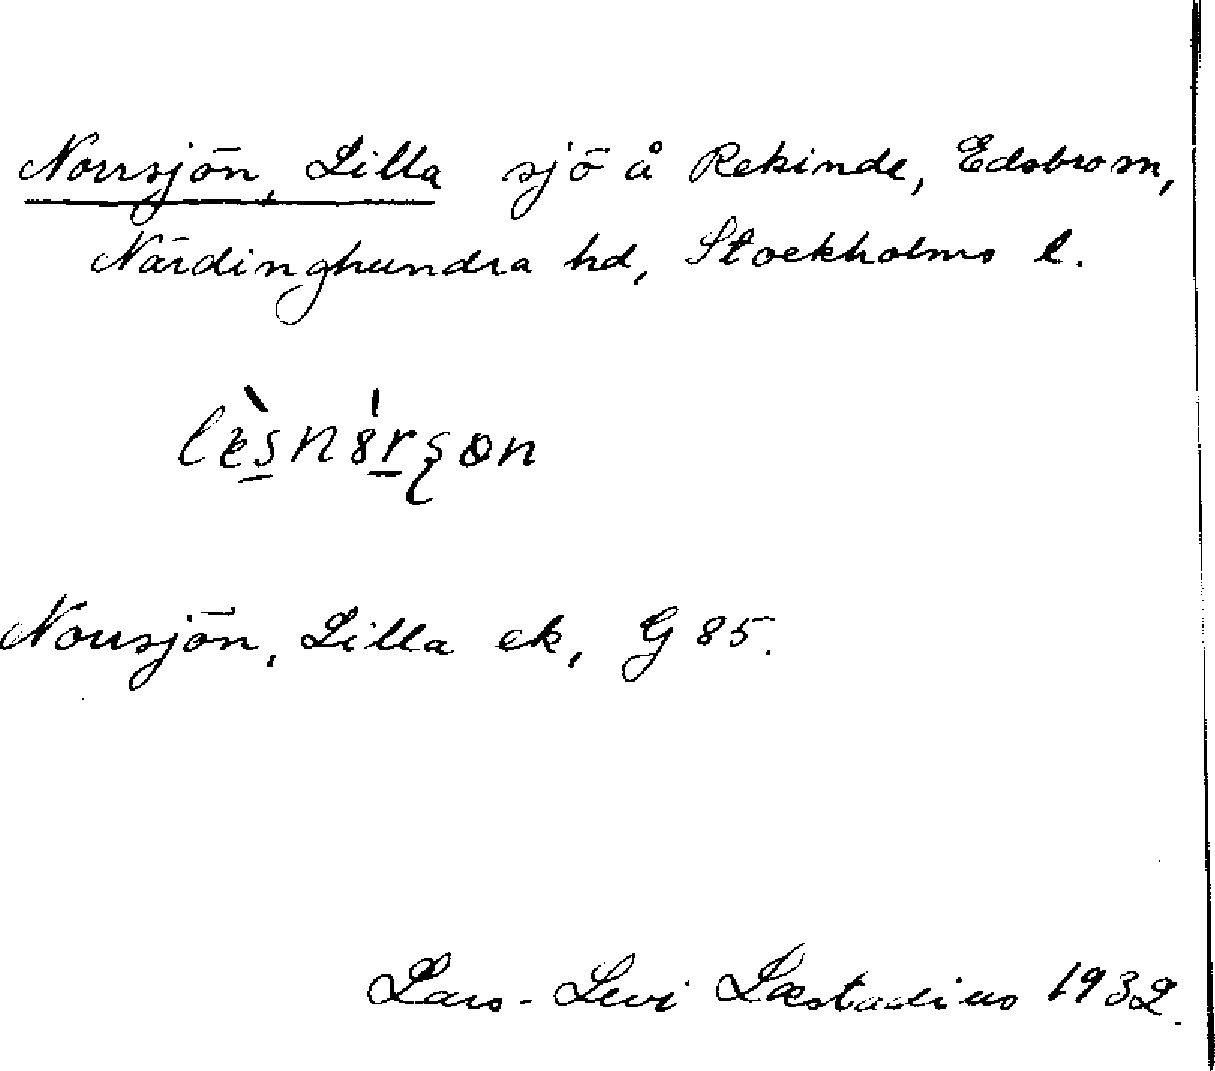 Norrsjön, Lilla sjö å Rekinde, Edsbro sn,
Närdinghundra hd, Stockholms l.
Norrsjön, Lilla ek, G 85.
Lars-Levi Læstadius 1932.